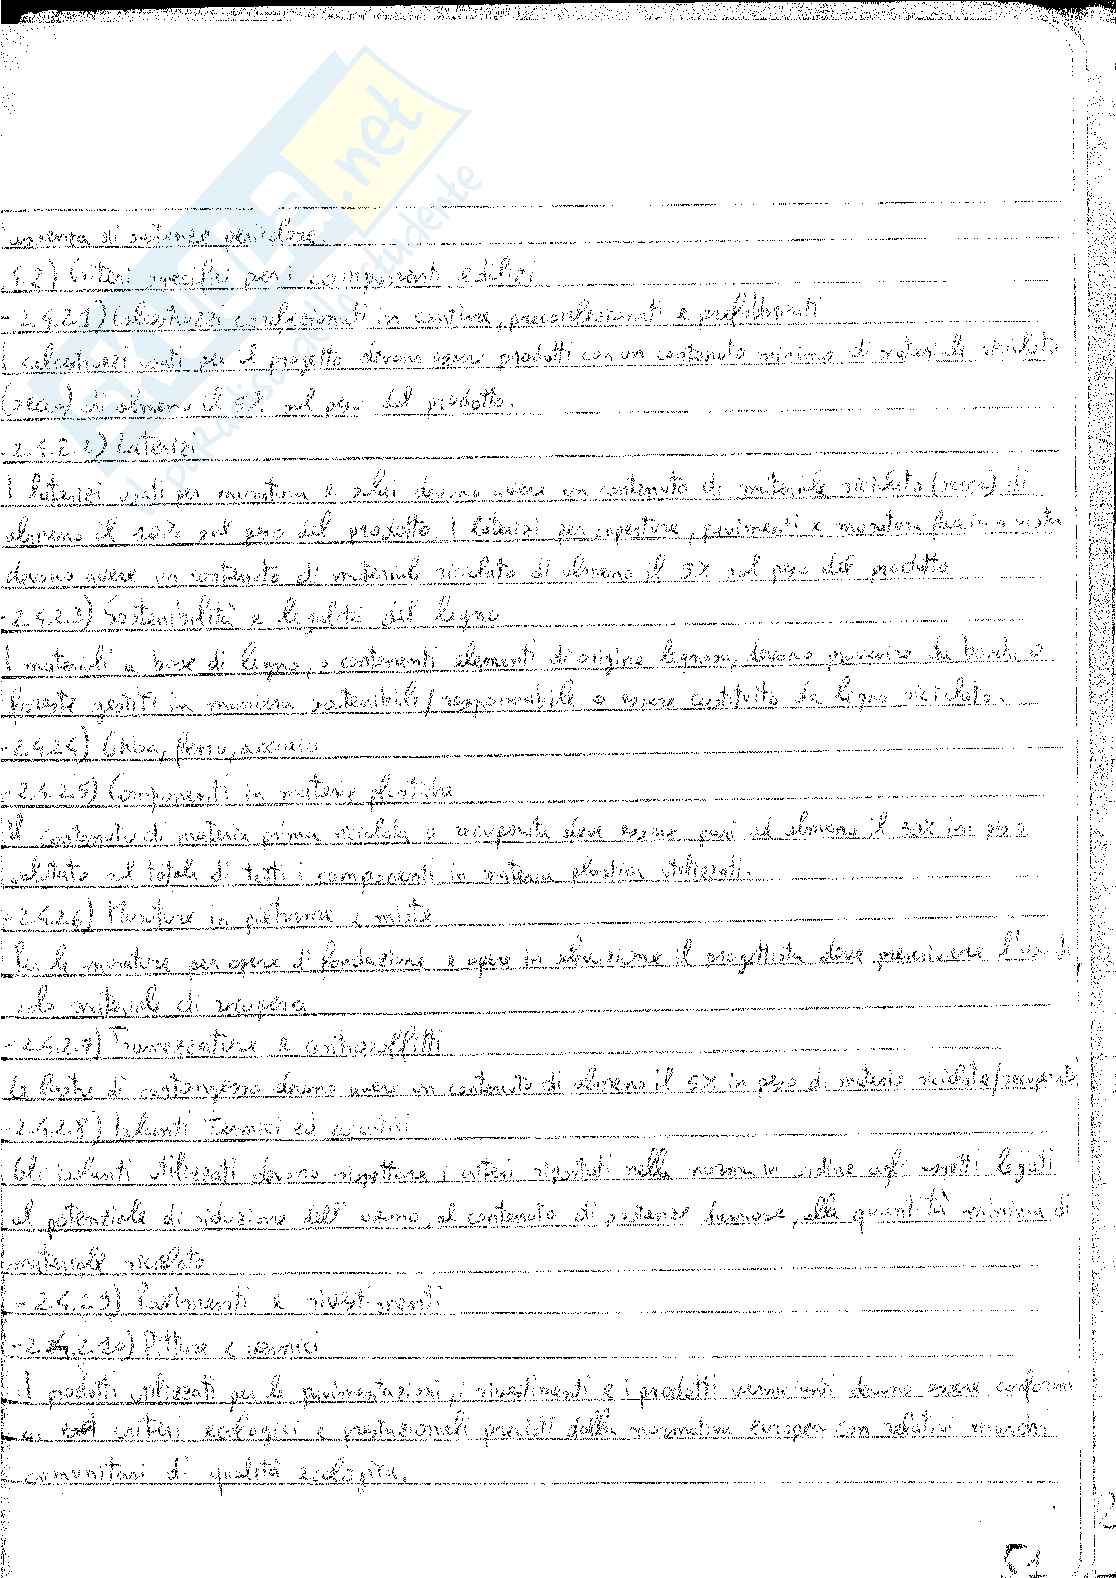 assenza di sostanze pericolose
.4.2) Criteri specifici per i componenti edilizi
- 2.4.2.1) Calcestruzzi confezionati in cantiere, preconfezionati e prefabbricati
I calcestruzzi usati per il progetto devono essere prodotti con un contenuto minimo di materiale riciclato
(secco) di almeno il 5% sul peso del prodotto.
- 2.4.2.2) Laterizi
I laterizi usati per muratura e solai devono avere un contenuto di materiale riciclato (secco) di
almeno il 10% sul peso del prodotto I laterizi per coperture, pavimenti e muratura faccia a vista
devono avere un contenuto di materiale riciclato di almeno il 5% sul peso del prodotto
- 2.4.2.3) Sostenibilità e legalità del legno
I materiali a base di legno, o contenenti elementi di origine legnosa, devono provenire da boschi o
foreste gestiti in maniera sostenibile/responsabile o essere costituito da legno riciclato.
- 2.4.2.4) Ghisa, ferro, acciaio
- 2.4.2.5) Componenti in materie plastiche
Il contenuto di materia prima riciclata o recuperata deve essere pari ad almeno il 30% in peso
valutato sul totale di tutti i componenti in materia plastica utilizzati.
- 2.4.2.6) Murature in pietrame e miste
Per le murature per opere di fondazione e opere in elevazione il progettista deve prescrivere l'uso di
solo materiale di recupero
- 2.4.2.7) Tramezzature e controsoffitti
Le lastre di cartongesso devono avere un contenuto di almeno il 5% in peso di materie riciclate/recuperate
- 2.4.2.8) Isolanti termici ed acustici
Gli isolanti utilizzati devono rispettare i criteri riportati nella norma in ordine agli aspetti legati
al potenziale di riduzione dell'ozono, al contenuto di sostanze dannose, alle quantità minima di
materiale riciclato
- 2.4.2.9) Pavimenti e rivestimenti
- 2.4.2.10) Pitture e vernici
I prodotti utilizzati per le pavimentazioni, i rivestimenti e i prodotti vernicianti devono essere conformi
ai criteri ecologici e prestazionali previsti dalla normativa europea con relativi marchi
comunitari di qualità ecologica.
51
SKUOLA.net
paradiso dello studente
2